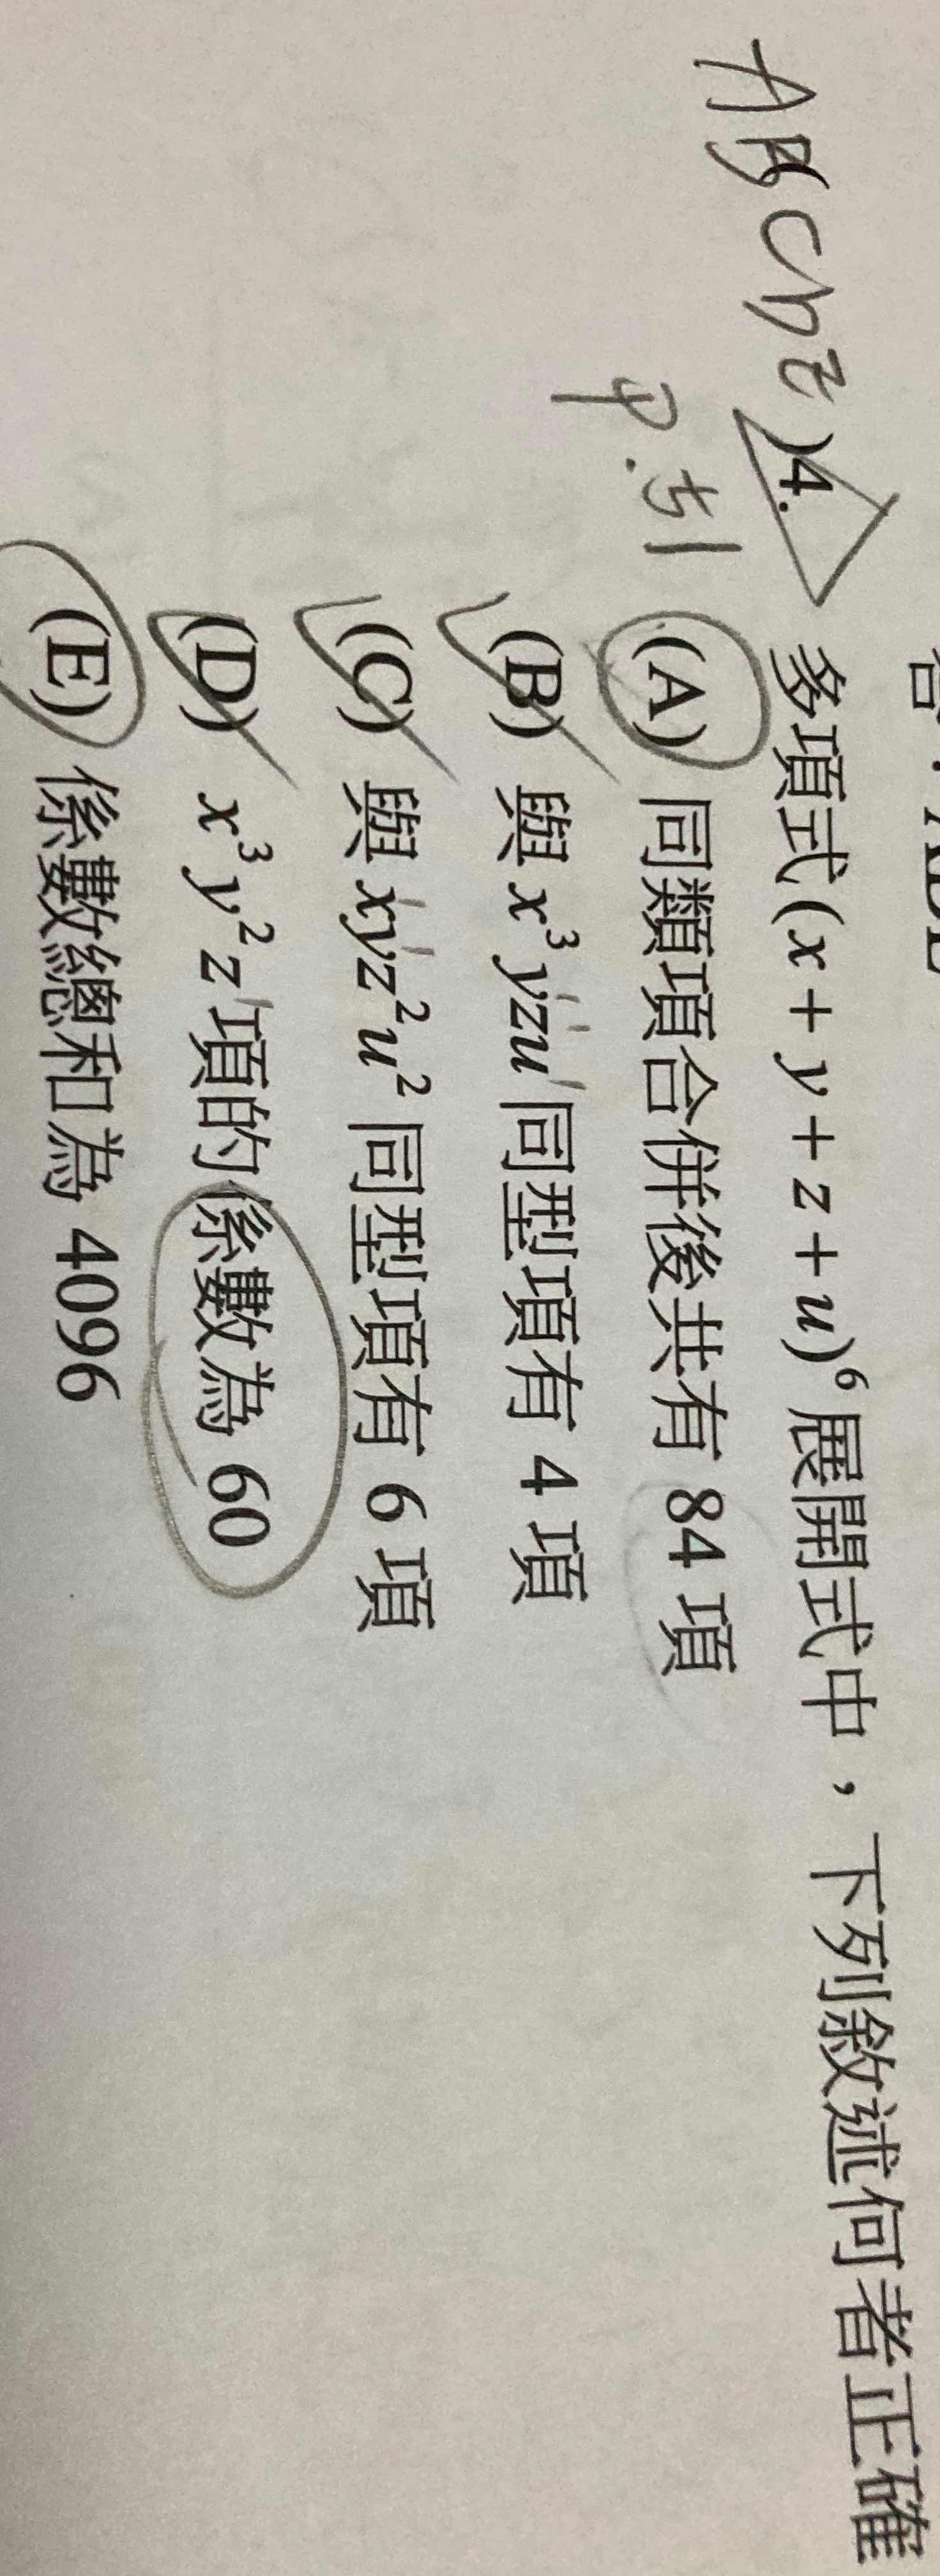 ABCDE)4. 多項式(x + y + z + u)⁶展開式中，下列敘述何者正確
P.51
(A) 同類項合併後共有 84 項
(B) 與 x³yzu 同型項有 4 項
(C) 與 xyz²u² 同型項有 6 項
(D) x³y²z 項的係數為 60
(E) 係數總和為 4096